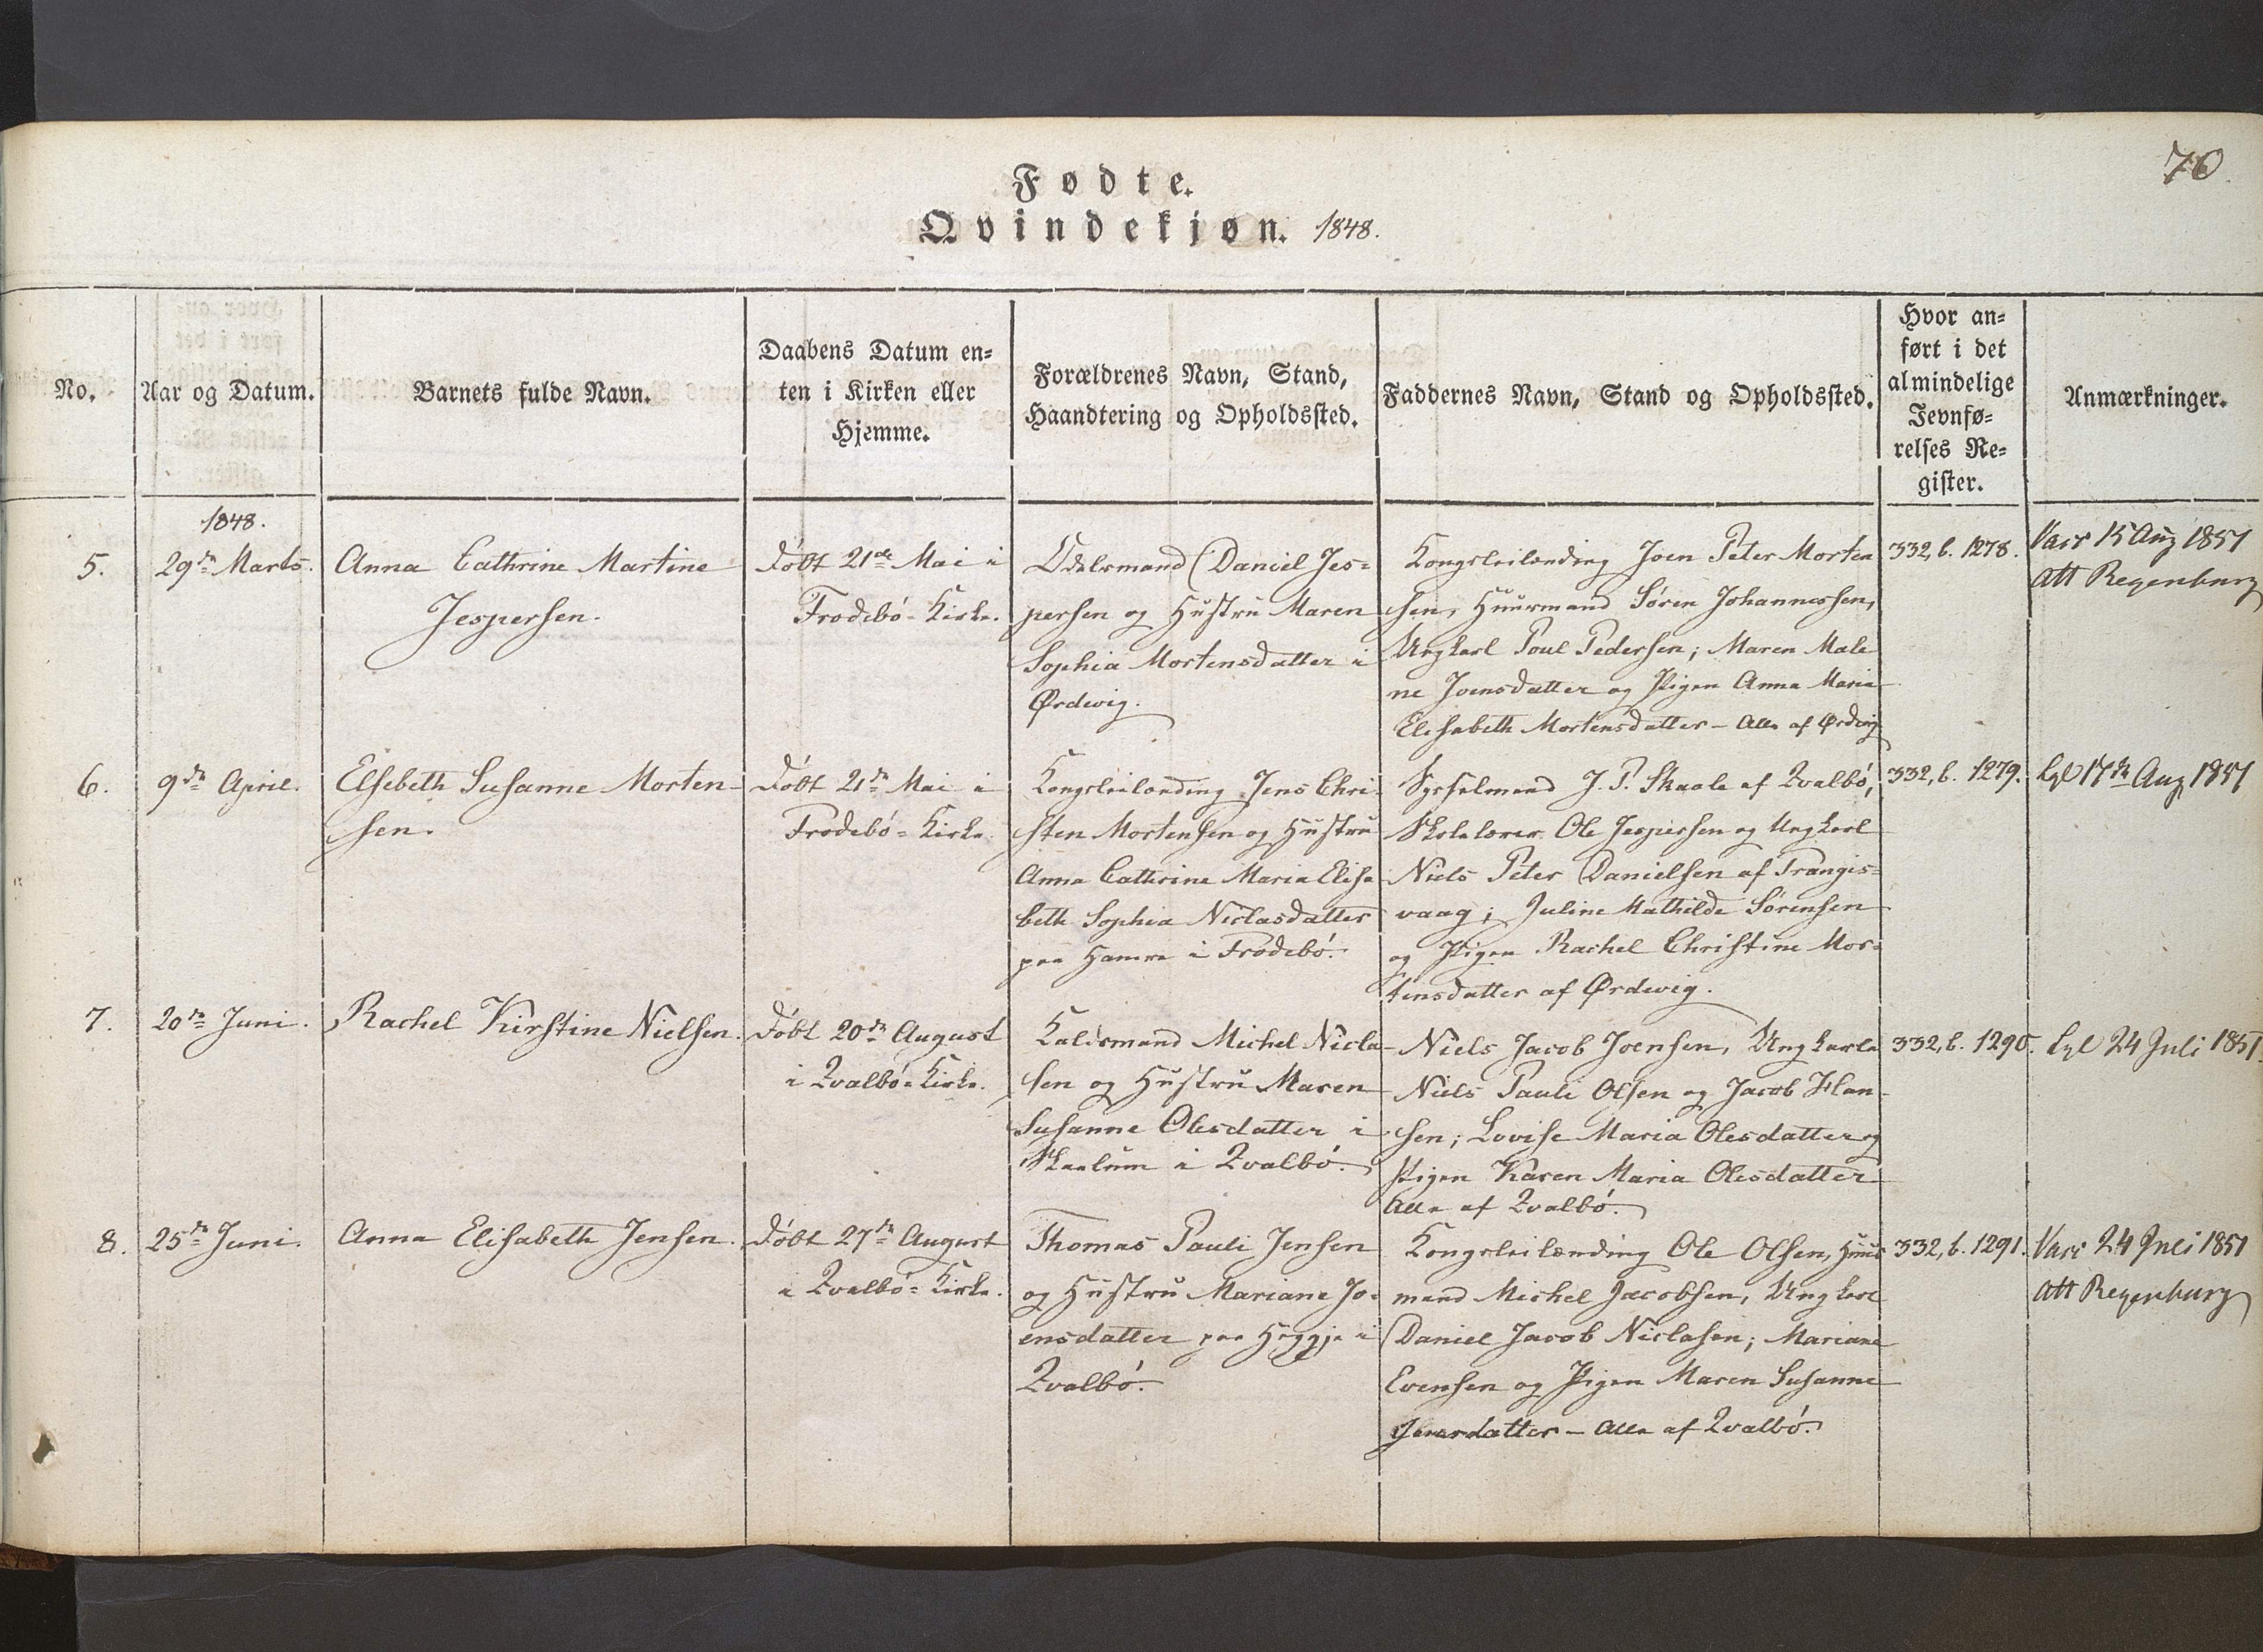 76
Fødte.
Qvindekjøn. 1848.
No.
Aar og Datum.
Barnets fulde Navn.
Daabens Datum en=
ten i Kirken eller
Hjemme.
Forældrenes Navn, Stand,
Haandtering og Opholdssted.
Faddernes Navn, Stand og Opholdssted.
Hvor an=
ført i det
almindelige
Jevnfø=
relses Re=
gister.
Anmærkninger.
1848.
5.
29de Marts.
Anna Cathrine Martine
Jespersen.
Døbt 21de Mai i
Frodebö=Kirke.
Odelsmand Daniel Jes=
persen og Hustru Maren
Sophia Mortensdatter i
Ørdevig.
Kongsleilænding Joen Peter Morten
sen, Huusmand Sören Johannessen,
Ungkarl Poul Pedersen; Maren Male
ne Joensdatter og Pigen Anna Maria
Elisabeth Mortensdatter – Alle af Ørdevig
332, b. 1278.
Vacc 15 Aug 1851
att Regenburg
6.
9de April.
Elsebeth Susanne Morten-
sen.
Døbt 21de Mai i
Frodebö=Kirke
Kongsleilænding Jens Chri
sten Mortensen og Hustru
Anna Cathrine Maria Elisa
beth Sophia Niclasdatter
paa Hamre i Frodebö.
Sysselmand J. P. Skaale af Qvalbö,
Skolelærer Ole Jespersen og Ungkarl
Niels Peter Danielsen af Trangis=
vaag; Juline Mathilde Sörensen
og Pigen Rachel Christine Mor=
tensdatter af Ørdevig.
332, b. 1279.
Lgl 17de Aug 1851
7.
20de Juni.
Rachel Kirstine Nielsen.
Døbt 20de August
i Qvalbö=Kirke.
Kaldsmand Michel Nicla-
sen og Hustru Maren
Susanne Olesdatter i
Skaalum i Qvalbö.
Niels Jacob Joensen, Ungkarle
Niels Pauli Olsen og Jacob Han-
sen; Lovise Maria Olesdatter og
Pigen Karen Maria Olesdatter
Alle af Qvalbö.
332, b. 1290.
Lgl 24 Juli 1851.
8.
25de Juni.
Anna Elisabeth Jensen.
Døbt 27de August
i Qvalbö=Kirke.
Thomas Pauli Jensen
og Hustru Mariane Jo=
ensdatter paa Heggje i
Qvalbö.
Kongsleilænding Ole Olsen, Huus
mand Michel Jacobsen, Ungkarl
Daniel Jacob Niclasen; Mariane
Evensen og Pigen Maren Susanne
datter – Alle af Qvalbö.
332, b. 1291.
Vacc 24 Juli 1851
att Regenburg